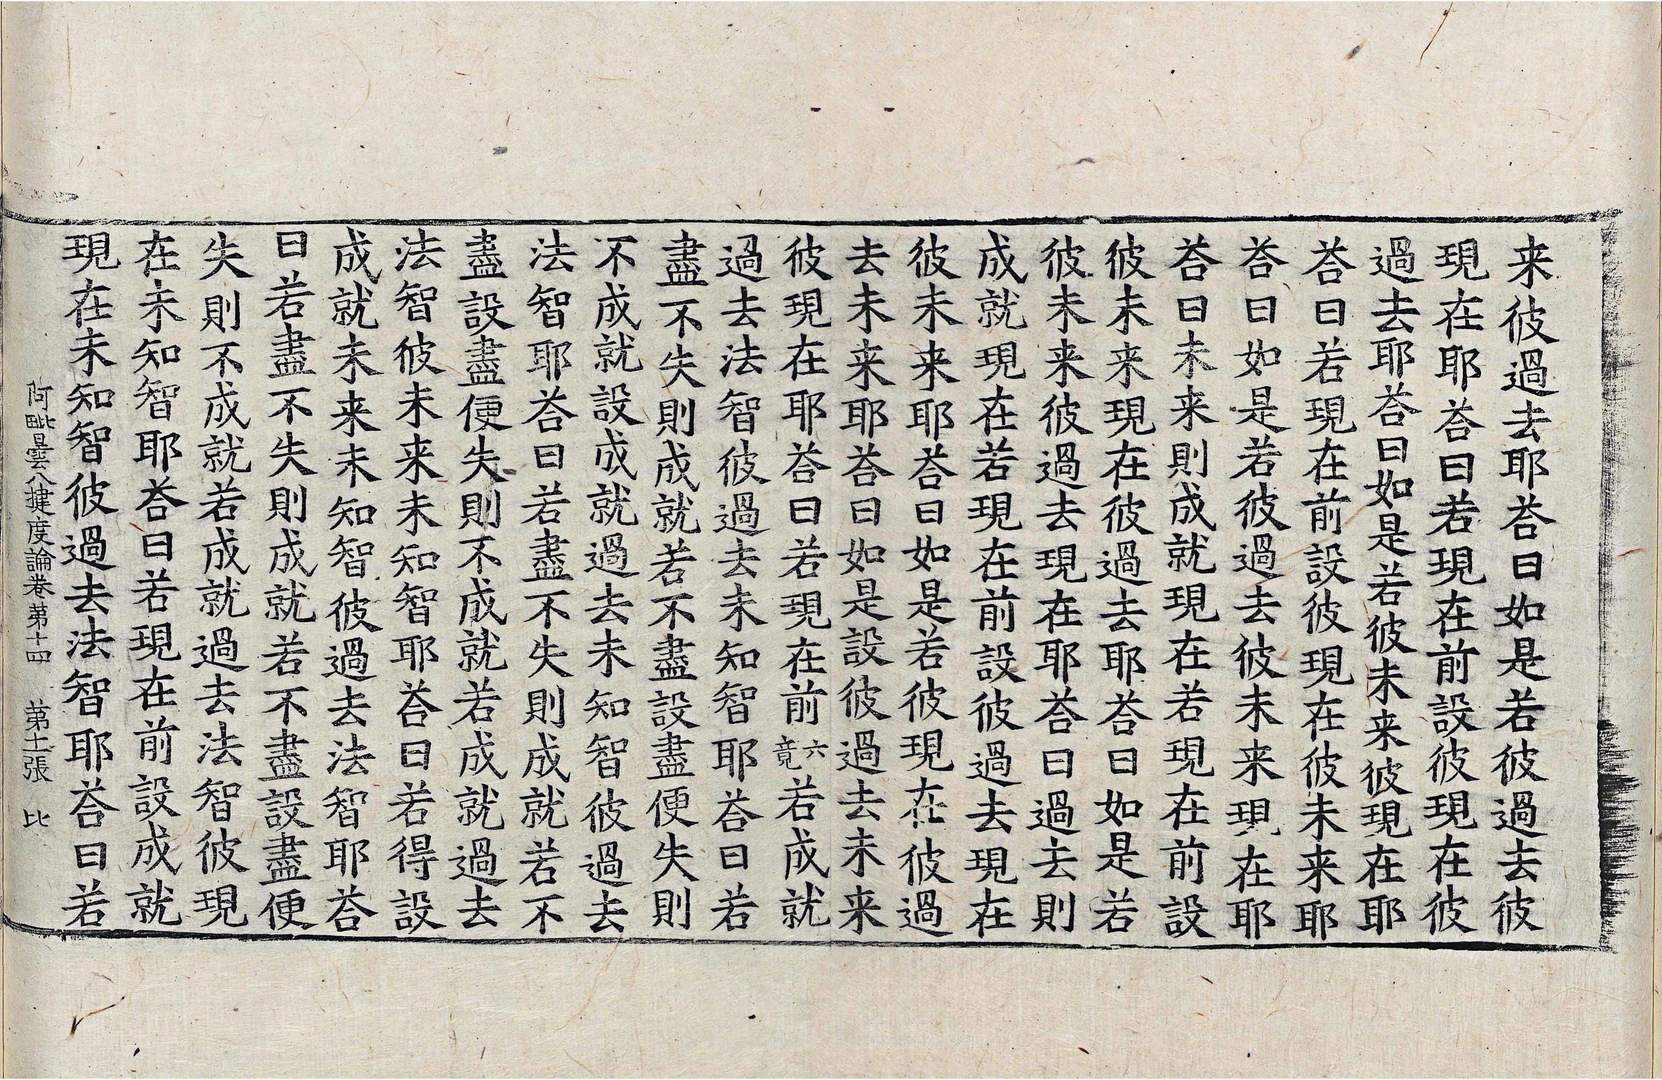 来彼過去耶荅曰如是若彼過去彼
現在耶荅曰若現在前設彼現在彼
過去耶荅曰如是若彼未来彼現在耶
荅曰若現在前設彼現在彼未来耶
荅曰如是若彼過去彼未来現在耶
荅曰未来則成就現在若現在前設
彼未来現在彼過去耶荅曰如是若
彼未来彼過去現在耶荅曰過去則
成就現在若現在前設彼過去現在
彼未来耶荅曰如是若彼現在彼過
去未来耶荅曰如是設彼過去未来
彼現在耶荅曰若現在前六竟若成就
過去法智彼過去未知智耶荅曰若
盡不失則成就若不盡設盡便失則
不成就設成就過去未知智彼過去
法智耶荅曰若盡不失則成就若不
盡設盡便失則不成就若成就過去
法智彼未来未知智耶荅曰若得設
成就未来未知智彼過去法智耶荅
曰若盡不失則成就若不盡設盡便
失則不成就若成就過去法智彼現
在未知智耶荅曰若現在前設成就
現在未知智彼過去法智耶荅曰若
阿毗曇八揵度論卷第十四 第十二張 比